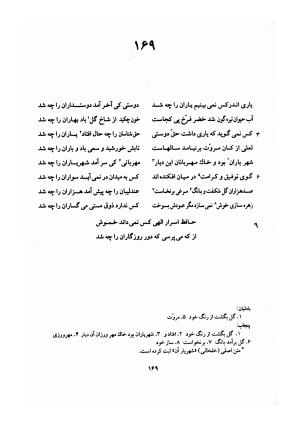 ۱۶۹
یاری اندر کس نمی بینیم یاران را چه شد دوستی کی آخر آمد دوستداران را چه شد
آب حیوان تیره گون شد خضر فرّخ پی کجاست خون چکید از شاخ گل۱ باد بهاران را چه شد
۳ کس نمی گوید که یاری داشت حقّ دوستی حق شناسان را چه حال افتاد۲ یاران را چه شد
لعلی از کان مروّت برنیامد سالهاست تابش خورشید و سعی باد و باران را چه شد
شهر یاران۳ بود و خاك مهربانان این دیار مهربانی۴ کی سر آمد شهریاران را چه شد
۶ گوی توفیق و کرامت۵ در میان افکنده اند کس به میدان در نمی آید سواران را چه شد
صدهزاران گل شکفت و بانگ۶ مرغی برنخاست۷ عندلیبان را چه پیش آمد هزاران را چه شد
زهره سازی خوش۸ نمی سازد مگر عودش بسوخت کس ندارد ذوق مستی می گساران را چه شد
۹ حافظ اسرار الهی کس نمی داند خموش
از که می پرسی که دور روزگاران را چه شد
۱. گل بگشت از رنگ خود ۵. مروّت
۱. گل بگشت از رنگ خود ۲. افتاد و ۳. شهریاران بود خاك مهر ورزان آن دیار ۴. مهرورزی
۶. گل برآمد بانگ ۷. برنخواست ۸. ساز خود
* متن اصلی (خلخالی) «شهریار آن» ثبت کرده است.
۱۶۹